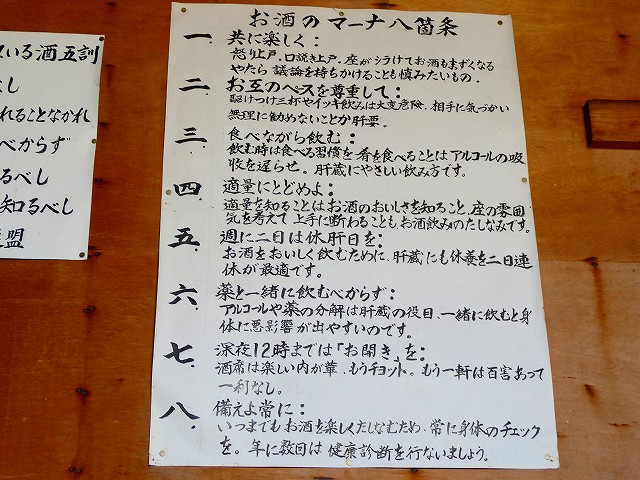 お酒のマーナ八箇条
一、共に楽しく：
怒り上戸、口説き上戸、座がシラけてお酒もまずくなる
やたら議論を持ちかけることも慎みたいもの．
二、お互のペースを尊重して：
駆けつけ三杯やイッキ飲みは大変危険、相手に気づかい
無理に勧めないことが肝要。
三、食べながら飲む：
飲む時は食べる習慣を肴を食べることはアルコールの吸
収を遅らせ。肝蔵にやさしい飲み方です。
四、適量にとどめよ：
適量を知ることはお酒のおいしさを知ること、座の雰囲
気を考えて上手に断わることも、お酒飲みのたしなみです。
五、週に二日は休肝日を：
お酒をおいしく飲むために、肝蔵にも休養を二日連
休が最適です。
六、薬と一緒に飲むべからず：
アルコールや薬の分解は肝蔵の役目、一緒に飲むと身
体に悪影響が出やすいのです。
七、深夜12時までは「お開き」を：
酒席は楽しい内が華、もうチョット。もう一軒は百害あって
一利なし。
八、備えよ常に：
いつまでもお酒を楽しくたしなむため、常に身体のチェック
を。年に数回は健康診断を行ないましょう。
いる酒五訓
なし
れることなかれ
べからず
るべし
知るべし
盟